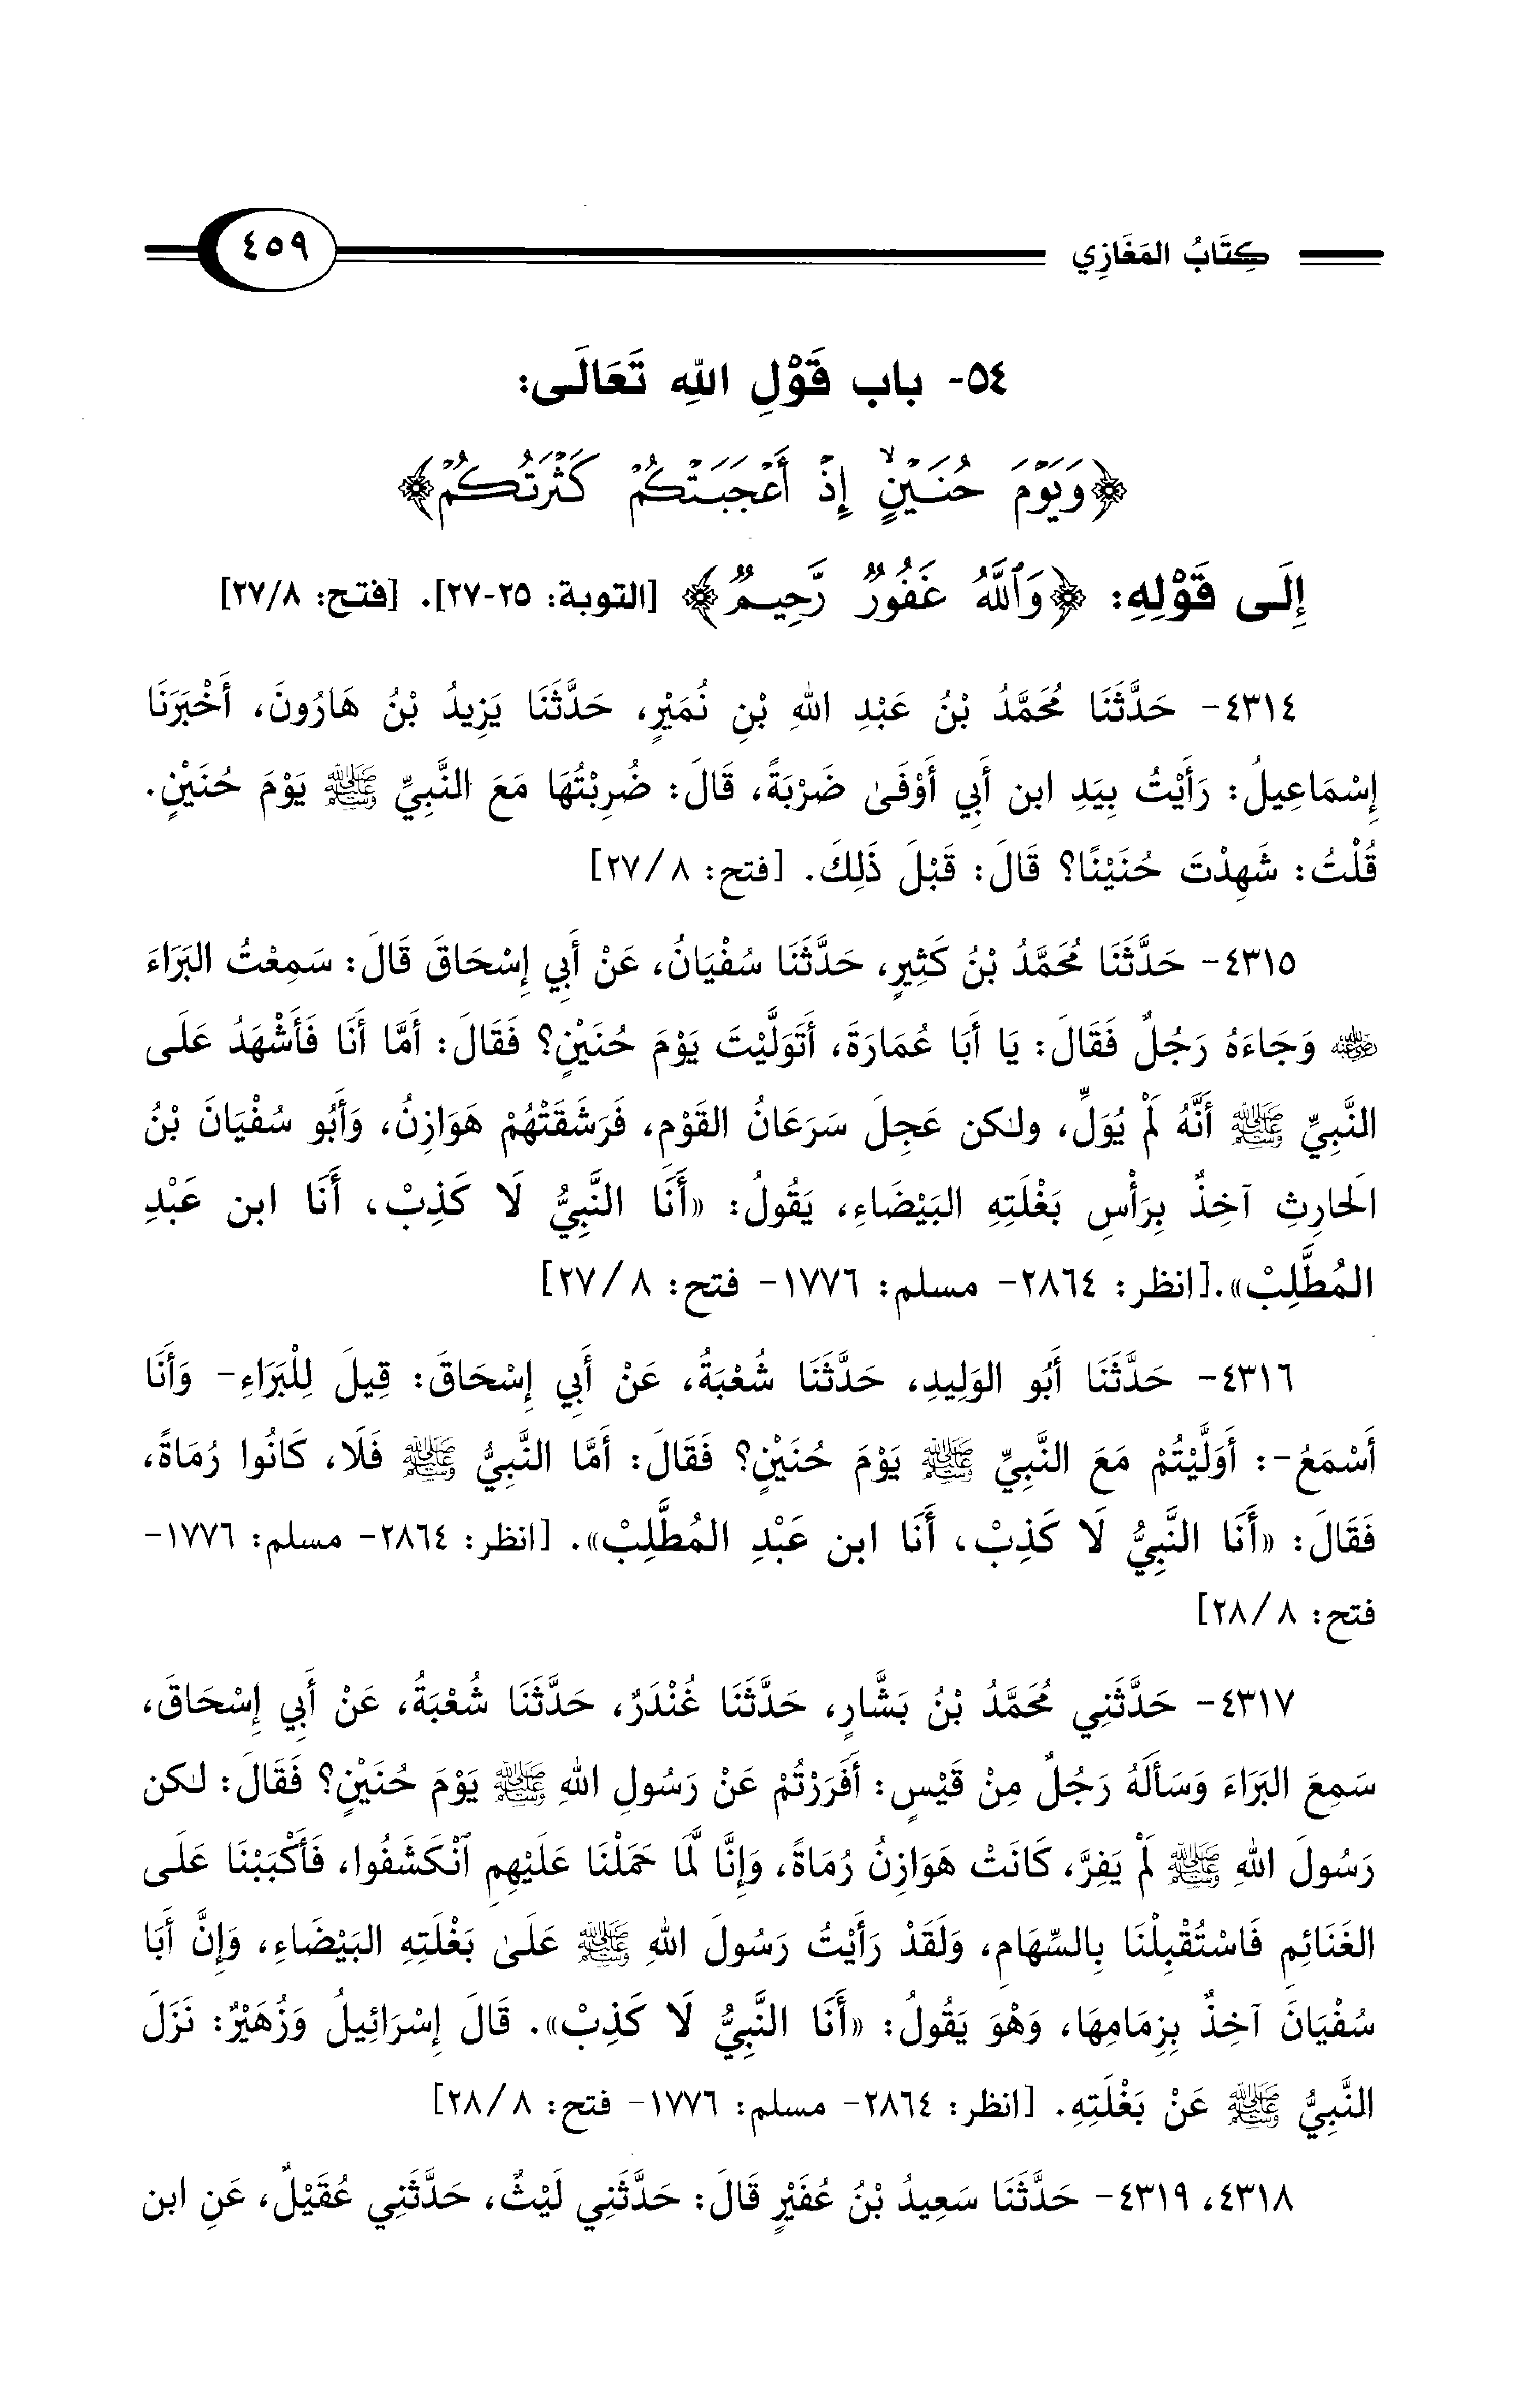 كِتَابُ المَغَازِي
٤٥٩
٥٤- باب قَوْلِ اللهِ تَعَالَى:
﴿وَيَوْمَ حُنَيْنٍ إِذْ أَعْجَبَتْكُمْ كَثْرَتُكُمْ﴾
إِلَى قَوْلِهِ: ﴿وَٱللَّهُ غَفُورٌ رَّحِيمٌ﴾ [التوبة: ٢٥-٢٧]. [فتح: ٢٧/٨]
٤٣١٤- حَدَّثَنَا مُحَمَّدُ بْنُ عَبْدِ اللهِ بْنِ نُمَيْرٍ، حَدَّثَنَا يَزِيدُ بْنُ هَارُونَ، أَخْبَرَنَا
إِسْمَاعِيلُ: رَأَيْتُ بِيَدِ ابن أَبِي أَوْفَىٰ ضَرْبَةً، قَالَ: ضُرِبْتُهَا مَعَ النَّبِيِّ ﷺ يَوْمَ حُنَيْنٍ.
قُلْتُ: شَهِدْتَ حُنَيْنًا؟ قَالَ: قَبْلَ ذَلِكَ. [فتح: ٨/ ٢٧]
٤٣١٥- حَدَّثَنَا مُحَمَّدُ بْنُ كَثِيرٍ، حَدَّثَنَا سُفْيَانُ، عَنْ أَبِي إِسْحَاقَ قَالَ: سَمِعْتُ البَرَاءَ
رضي الله عنه وَجَاءَهُ رَجُلٌ فَقَالَ: يَا أَبَا عُمَارَةَ، أَتَوَلَّيْتَ يَوْمَ حُنَيْنٍ؟ فَقَالَ: أَمَّا أَنَا فَأَشْهَدُ عَلَى
النَّبِيِّ ﷺ أَنَّهُ لَمْ يُوَلِّ، ولٰكن عَجِلَ سَرَعَانُ القَوْمِ، فَرَشَقَتْهُمْ هَوَازِنُ، وَأَبُو سُفْيَانَ بْنُ
الحَارِثِ آخِذٌ بِرَأْسِ بَغْلَتِهِ البَيْضَاءِ، يَقُولُ: «أَنَا النَّبِيُّ لَا كَذِبْ، أَنَا ابن عَبْدِ
المُطَّلِبْ».[انظر: ٢٨٦٤- مسلم: ١٧٧٦- فتح: ٨/ ٢٧]
٤٣١٦- حَدَّثَنَا أَبُو الوَلِيدِ، حَدَّثَنَا شُعْبَةُ، عَنْ أَبِي إِسْحَاقَ: قِيلَ لِلْبَرَاءِ- وَأَنَا
أَسْمَعُ-: أَوَلَّيْتُمْ مَعَ النَّبِيِّ ﷺ يَوْمَ حُنَيْنٍ؟ فَقَالَ: أَمَّا النَّبِيُّ ﷺ فَلَا، كَانُوا رُمَاةً،
فَقَالَ: «أَنَا النَّبِيُّ لَا كَذِبْ، أَنَا ابن عَبْدِ المُطَّلِبْ». [انظر: ٢٨٦٤- مسلم: ١٧٧٦-
فتح: ٨/ ٢٨]
٤٣١٧- حَدَّثَنِي مُحَمَّدُ بْنُ بَشَّارٍ، حَدَّثَنَا غُنْدَرٌ، حَدَّثَنَا شُعْبَةُ، عَنْ أَبِي إِسْحَاقَ،
سَمِعَ البَرَاءَ وَسَأَلَهُ رَجُلٌ مِنْ قَيْسٍ: أَفَرَرْتُمْ عَنْ رَسُولِ اللهِ ﷺ يَوْمَ حُنَيْنٍ؟ فَقَالَ: لٰكن
رَسُولَ اللهِ ﷺ لَمْ يَفِرَّ، كَانَتْ هَوَازِنُ رُمَاةً، وَإِنَّا لَمَّا حَمَلْنَا عَلَيْهِمِ ٱنْكَشَفُوا، فَأَكْبَبْنَا عَلَى
الغَنَائِمِ فَاسْتُقْبِلْنَا بِالسِّهَامِ، وَلَقَدْ رَأَيْتُ رَسُولَ اللهِ ﷺ عَلَىٰ بَغْلَتِهِ البَيْضَاءِ، وَإِنَّ أَبَا
سُفْيَانَ آخِذٌ بِزِمَامِهَا، وَهْوَ يَقُولُ: «أَنَا النَّبِيُّ لَا كَذِبْ». قَالَ إِسْرَائِيلُ وَزُهَيْرٌ: نَزَلَ
النَّبِيُّ ﷺ عَنْ بَغْلَتِهِ. [انظر: ٢٨٦٤- مسلم: ١٧٧٦- فتح: ٨/ ٢٨]
٤٣١٨، ٤٣١٩- حَدَّثَنَا سَعِيدُ بْنُ عُفَيْرٍ قَالَ: حَدَّثَنِي لَيْثٌ، حَدَّثَنِي عُقَيْلٌ، عَنِ ابن